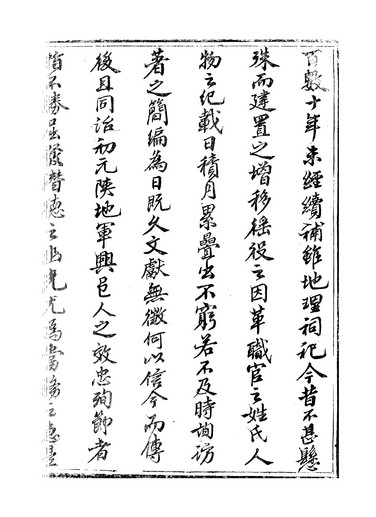 百數十年未經續補雖地理祠祀今昔不甚懸
殊而建置之增移徭役之因革職官之姓氏人
物之紀載日積月累疊出不窮若不及時詢訪
著之簡編為日既久文獻無徵何以信今而傳
後且同治初元陝地軍興邑人之效忠殉節者
指不勝屈潛德之幽光尤為當